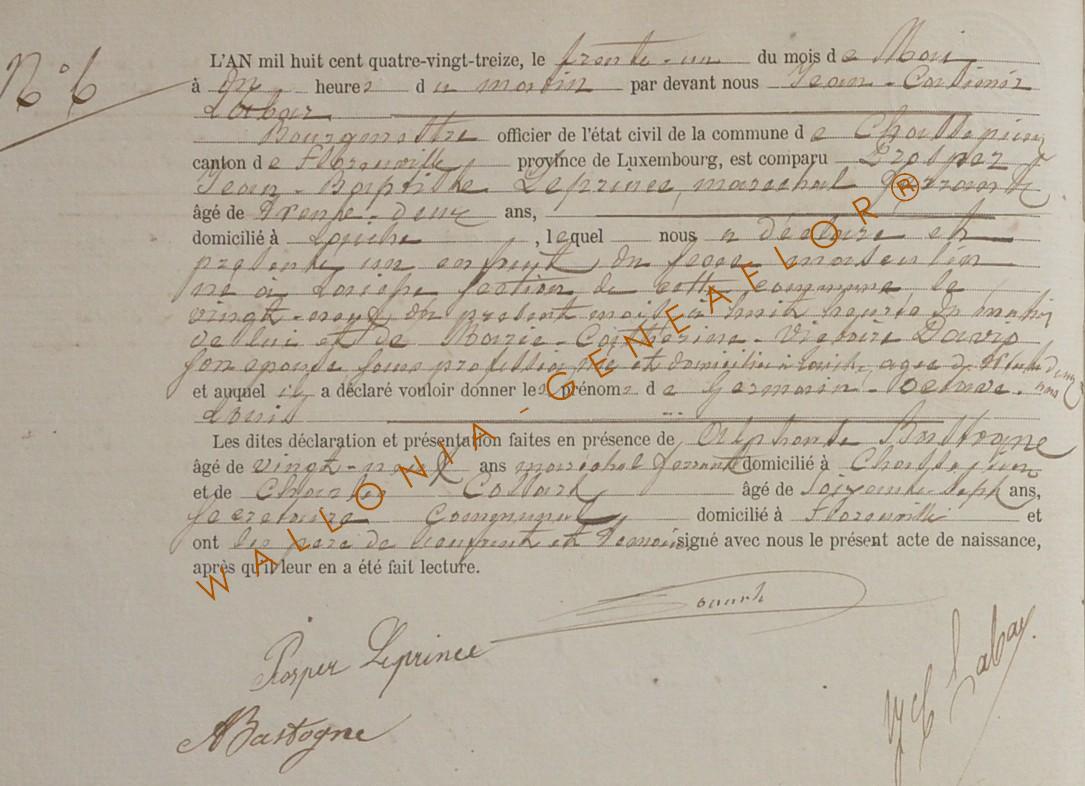 N° 6
L'AN mil huit cent quatre-vingt-treize, le trente-un du mois de Mai
à dix heures du matin par devant nous Jean-
Labar
Bourgmestre officier de l'état civil de la commune de Chassepierre
canton de Florenville province de Luxembourg, est comparu Prosper
Jean-Baptiste Leprince, maréchal ferrant
âgé de trente-deux ans,
domicilié à Laiche, lequel nous a déclaré et
présenté un enfant du sexe masculin
né à Laiche section de cette commune le
vingt-neuf du présent mois à huit heures du matin
de lui et de Marie-Catherine-Victoire David
son épouse sans profession née et domiciliée à Laiche, agée de trente deux ans
et auquel il a déclaré vouloir donner les prénoms de Germain-Octave-
Louis
Les dites déclaration et présentation faites en présence de Alphonse Bastogne
âgé de vingt-neuf ans maréchal ferrant domicilié à Chassepierre
et de Charles Collard âgé de soixante-sept ans,
secrétaire communal domicilié à Florenville et
ont les père de l'enfant et témoins signé avec nous le présent acte de naissance,
après qu'il leur en a été fait lecture.
Prosper Leprince
ABastogne
JC Labar
WALLONIA-GENEAFLOR®